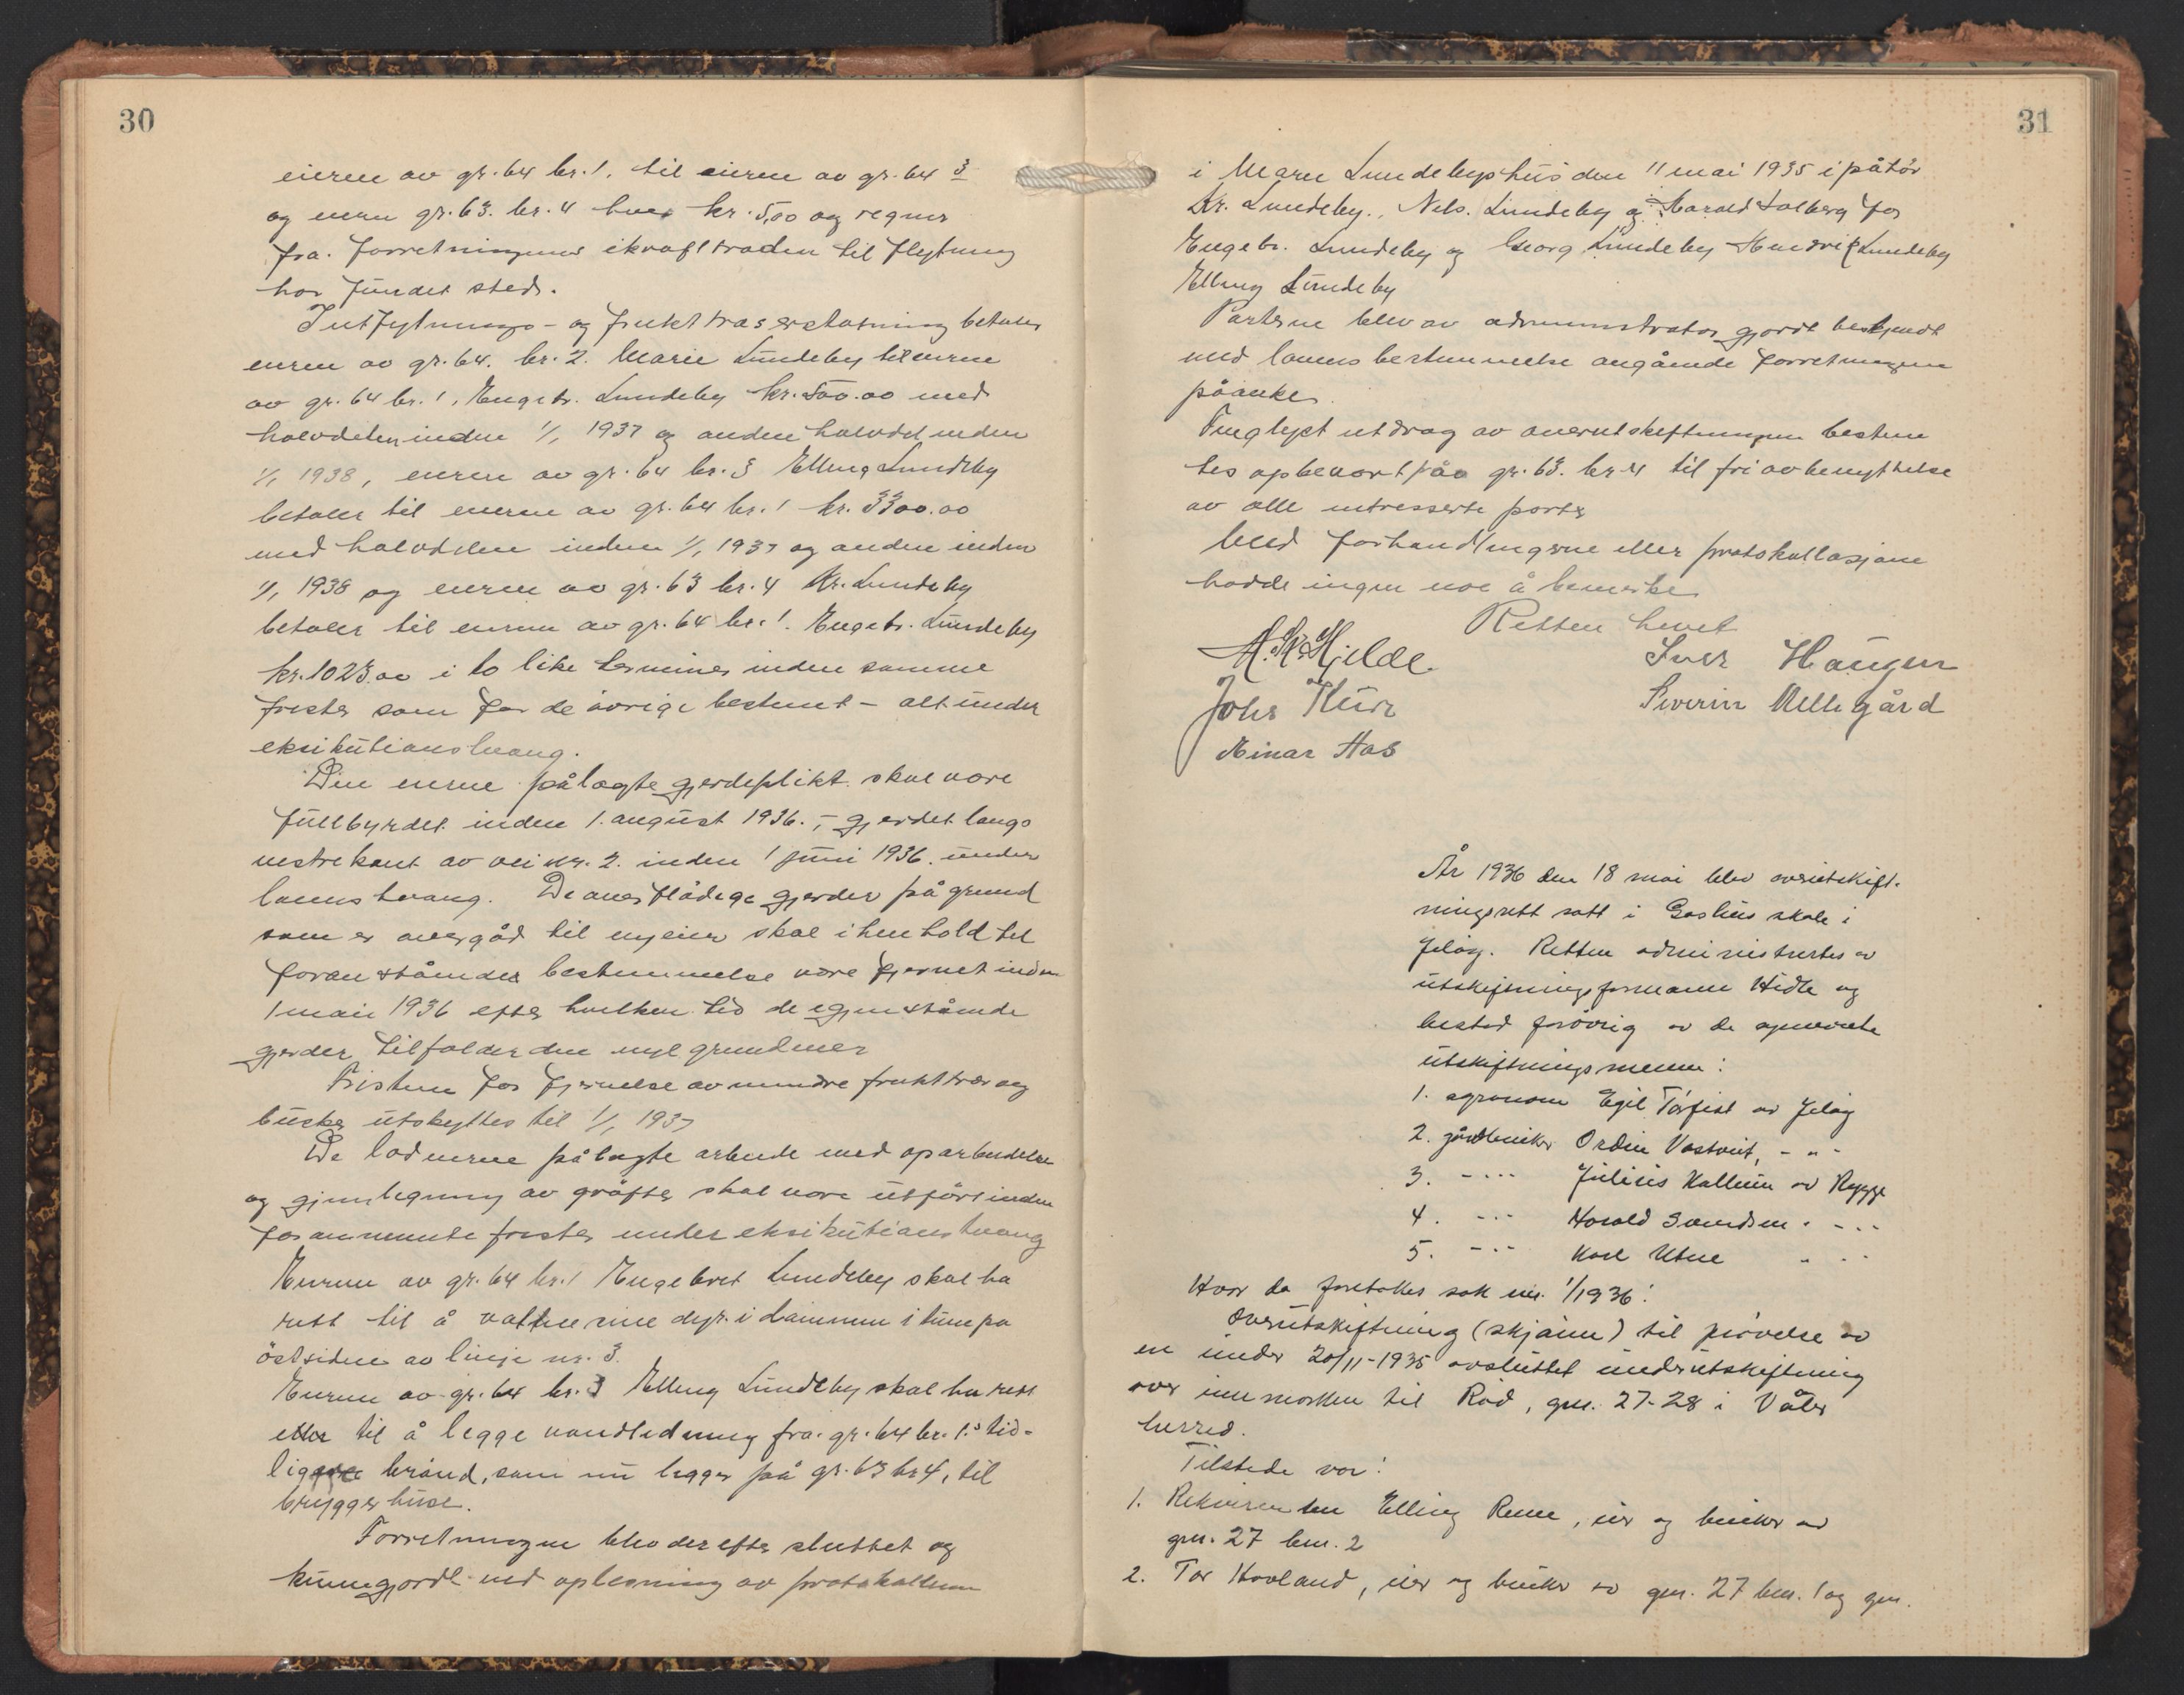 30
eieren av gr. 64 br. 1. til eieren av gr. 64 3
og eieren gr. 63. br. 4 hver kr. 5,00 og regnes
fra forretningens ikrafttræden til flytning
har fundet sted.
Indflytnings- og frukttræserstatning betaler
eieren av gr. 64. br. 2. Marie Lundeby til eieren
av gr. 64 br. 1, Engebr. Lundeby kr. 500.00 med
halvdelen inden 1/1 1937 og anden halvdel inden
1/1 1938, eieren av gr. 64 br. 3 Elling Lundeby
betaler til eieren av gr. 64 br. 1 kr. 3300.00
med halvdelen inden 1/1 1937 og anden inden
1/1 1938 og eieren av gr. 63 br. 4 Kr. Lundeby
betaler til eieren av gr. 64 br. 1. Engebr. Lundeby
kr. 1023.00 i to like terminer inden samme
frister som for de övrige bestemt - alt under
eksikutionstvang.
Den eierne pålagte gjerdeplikt skal være
fullbyrdet inden 1. august 1936. - gjerdet langs
vestre kant av vei nr. 2. inden 1 juni 1936. under
lovens tvang. De overflödige gjerder på grund
som er overgåd til ny eier skal i henhold til
foranstående bestemmelse være fjernet inden
1 mai 1936 efter hvilken tid de igjenstående
gjerder tilfalder den nye grundeier
Fristen for fjernelse av mindre frukttrær og
busker utskyttes til 1/1 1937
De lodeierne pålagte arbeide med oparbeidelse
og gjenlegning av gröfter skal være utfört inden
forannevnte frister under eksikutionstvang
Eieren av gr. 64 br. 1 Engebret Lundeby skal ha
rett til å vattne sine dyr i dammen i tunet på
östsiden av linje nr. 3.
Eieren av gr. 64 br. 3 Elling Lundeby skal ha rett
til å legge vandledning fra gr. 64 br. 1.s tid-
ligere brönd, som nu ligger på gr. 63 br 4, til
bryggerhuset.
Forretningen blev derefter sluttet og
kunngjordt ved oplesning av protokollen
31
i Marie Lundebys hus den 11 mai 1935 i påhör
Kr. Lundeby., Nils. Lundeby og Harald Solberg for
Engebr. Lundeby og Georg Lundeby Hendrik Lundeby
Elling Lundeby
Parterne blev av administrator gjordt bekjendt
med lovens bestemmelse angående forretningens
påanke.
Tinglyst utdrag av overutskiftningen bestem
tes opbevart på gr. 63. br 4 til fri avbenyttelse
av alle intresserte parter
Med forhandlingerne eller protokollasjonen
hadde ingen noe å bemerke
Retten hevet
Iver Haugen
Johs
Severin Ullegård
Einar Aas
År 1936 den 18 mai blev overutskift-
ningsrett satt i Goshus skole i
Jelöy. Retten administrertes av
utskiftningsformann Hidle og
bestod forövrig av de opnevnte
utskiftningsmenn:
1. agronom Egil Torfist av Jelöy
2. gårdbruker Ordin Vastvit, - " -
3. - " - Julius Kallum av Rygge
4. - " - Harald Svendsen - " -
5. - " - Karl Utne - " -
Hvor da foretokes sak nr. 1/1936:
Overutskiftning (skjönn) til prövelse av
en under 20/11-1935 avsluttet underutskiftning
over innmarken til Röd, gnr. 27-28 i Våler
herred.
Tilstede var:
1. Rekvirenten Elling Rene, eier og bruker av
gnr. 27 bnr. 2
2. Tor Hovland, eier og bruker av gnr. 27 bnr. 1 og gnr.